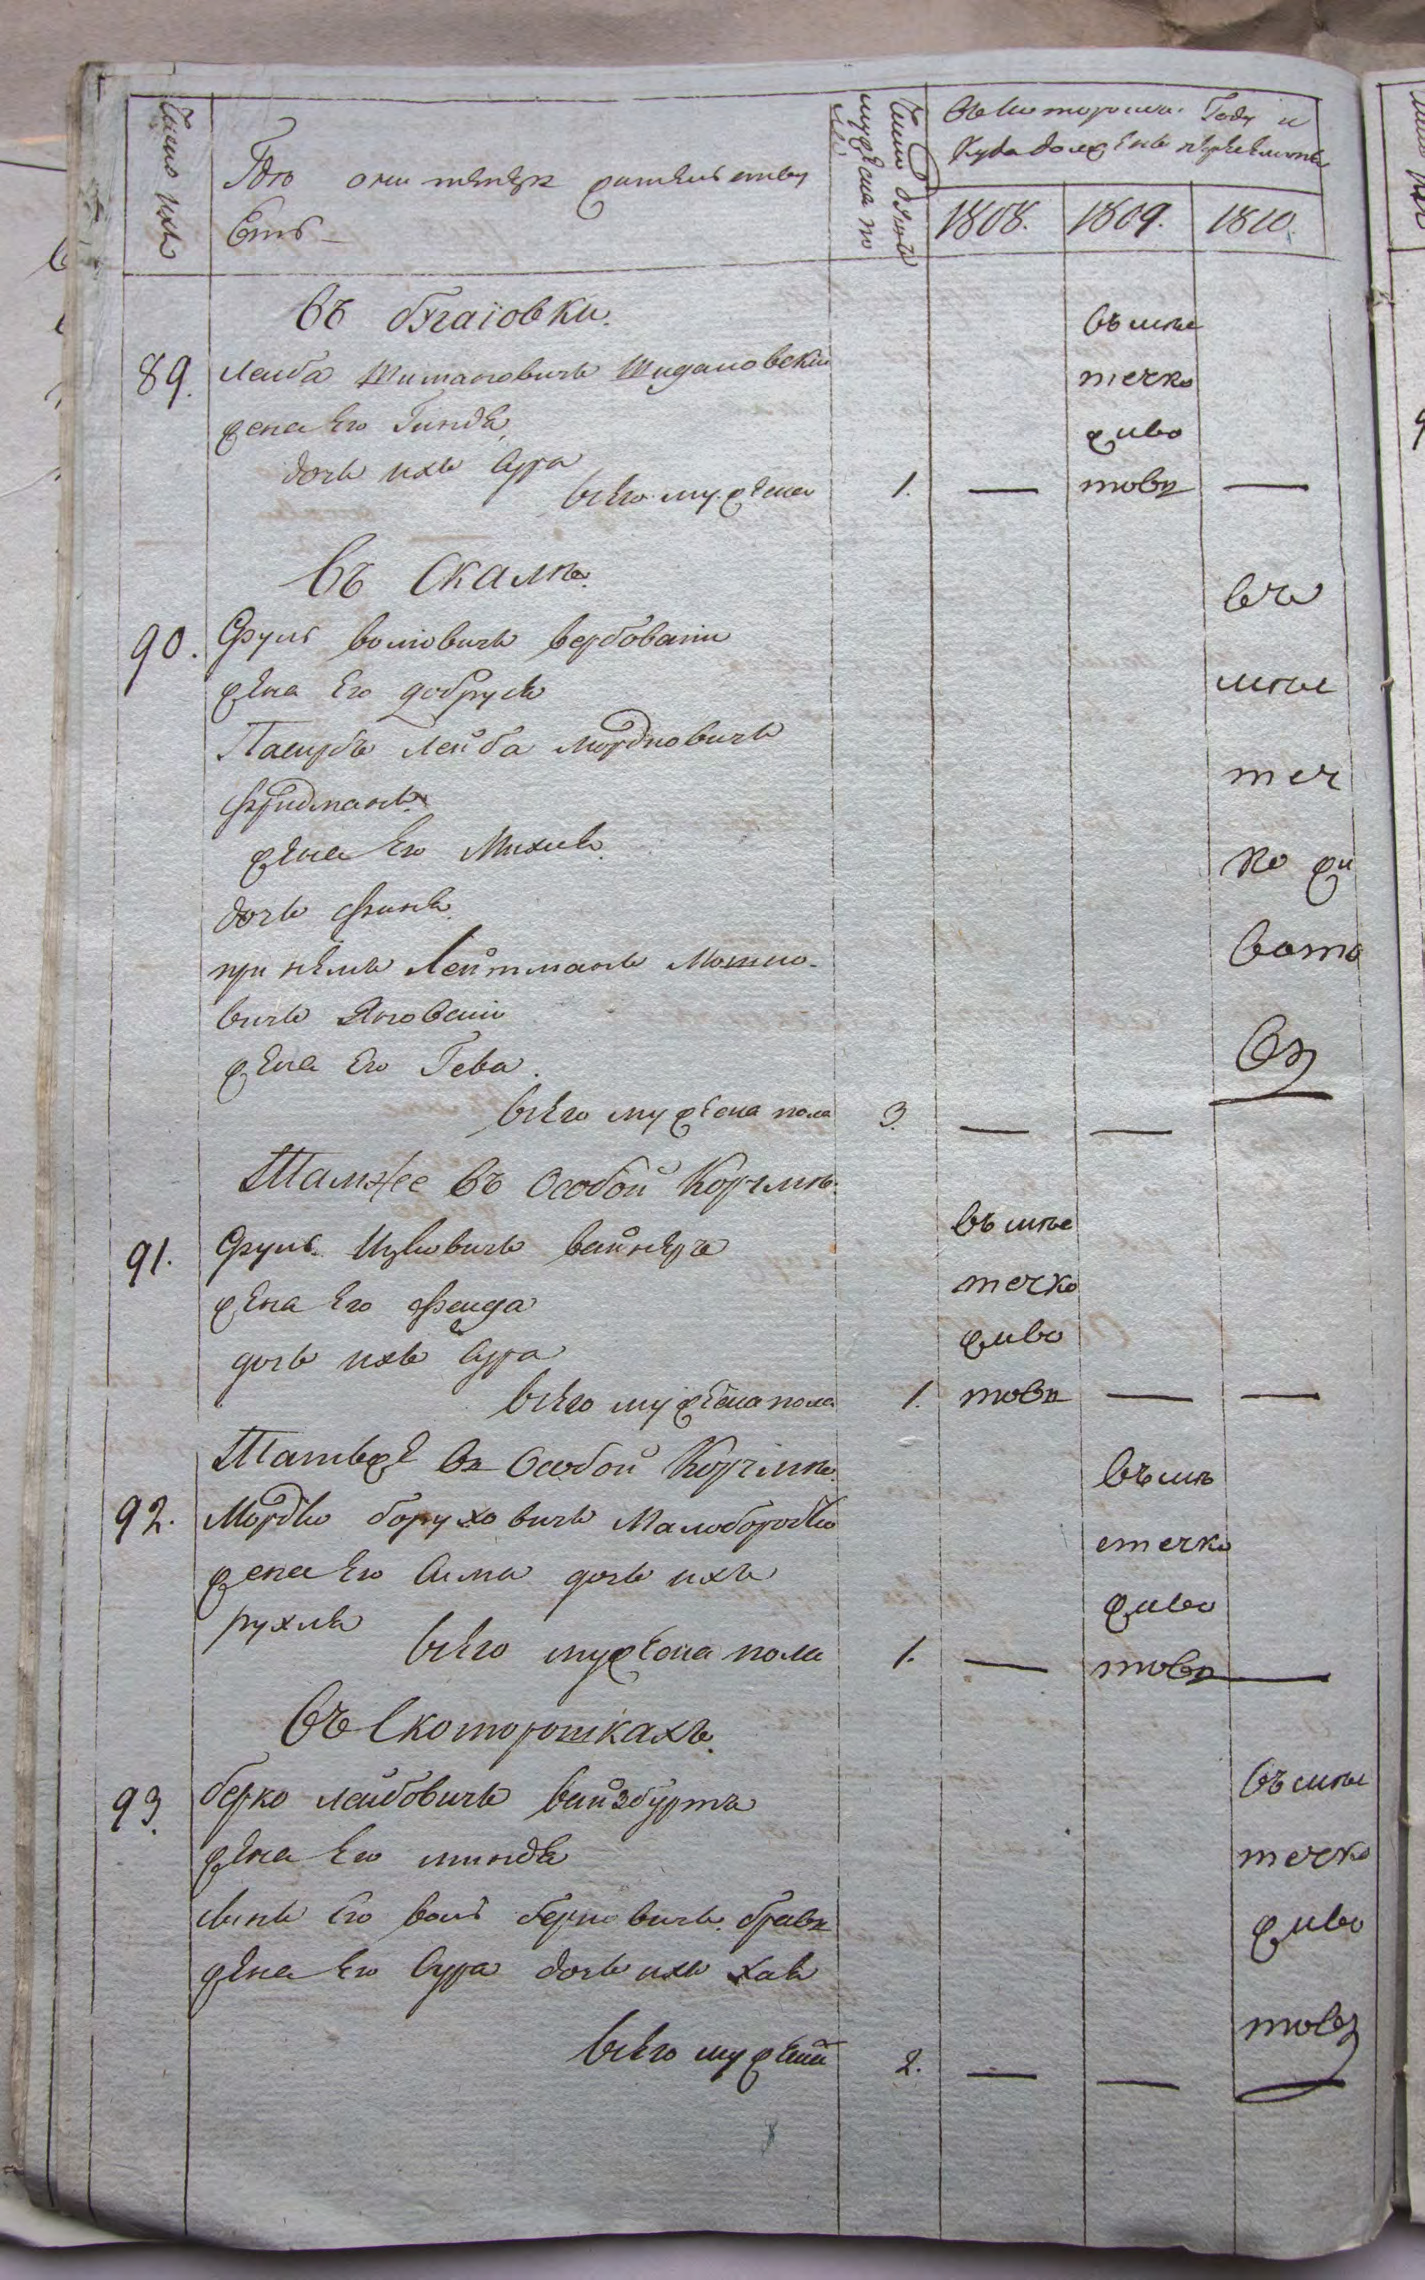 Число ихъ
Где они теперь жительству
ютъ
Число душъ мужеска по
ла
Въ которомъ Году и
куда должены переехать
1808. 1809. 1810.
Въ бгаіовки.
89. Лейба Шимановичь Шидловскій
жена Его Гинда
дочь ихъ Сура
всего мужеска 1.
въ мѣс
течко
живо
товъ
Въ Скалѣ.
90. Сруль волковичь вербованій
жена Его добрусь
Пасирбъ Лейба мордковичь
Фридманъ
жена Его Михля
дочь Финя
при немъ Лейтманъ Мошко-
вичь
жена Его Гева.
всего мужеска пола 3.
въ
мѣс
теч
ко жи
вото
въ
Тамже въ Особой Корчмѣ.
91. Сруль Ицковичь вайнеръ
жена Его Фейда
дочь ихъ Сура
всего мужеска пола 1.
въ мѣс
течко
живо
товъ
Тамже въ Особой Корчмѣ
92. Мордко боруховичь Малобородко
жена Его Сима дочь ихъ
рухля
всего мужеска пола 1.
въ мѣ
стечко
живо
товъ
Въ Скоморошкахъ.
93. берко лейбовичь вайзбуртъ
жена Его миндя
сынъ Его воль берковичь
жена Его Сура дочь ихъ хая
всего мужеска 2.
въ мѣс
течко
живо
товъ